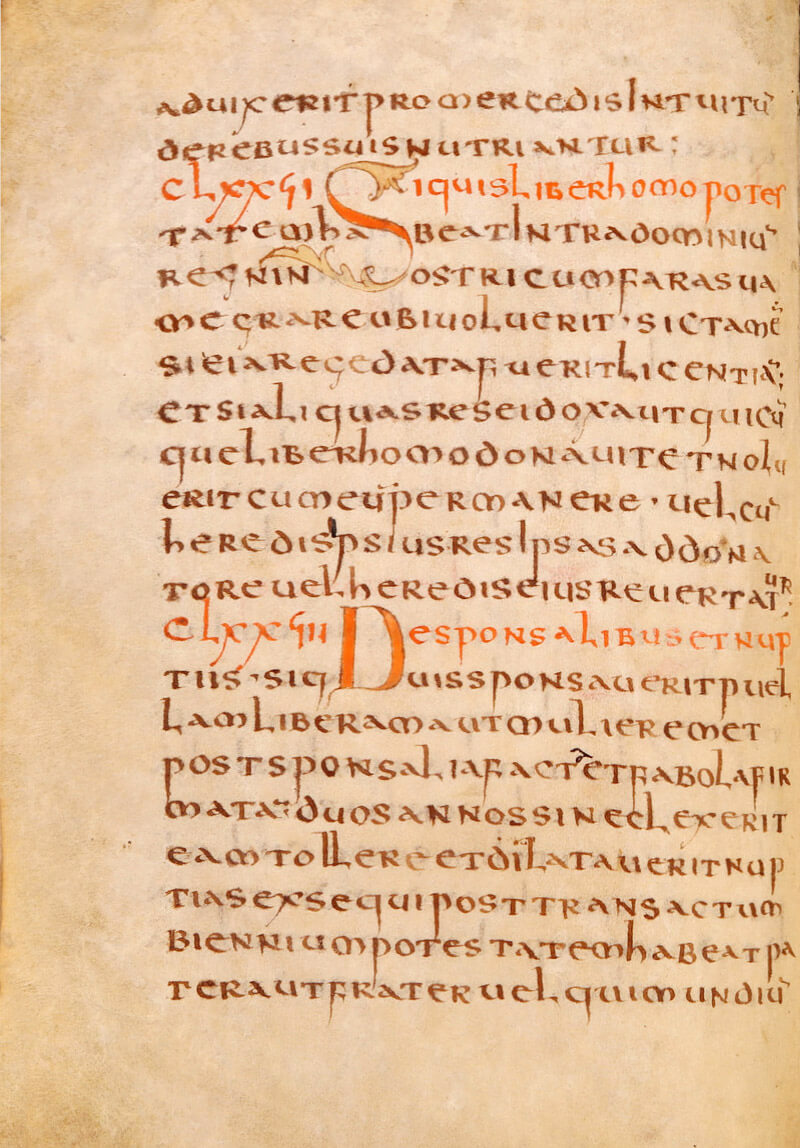 aduixerit pro mercedis intuitū
de rebus suis nutriantur :
clxxϛi Si quis liber homo potes
tatem habeat intra dominiū
regni nostri cum fara sua
megrare ubi uoluerit · sic tamē
si ei a rege data fuerit licentia;
et si aliquas res ei dox aut quicū
que liber homo donauit et nolu
erit cum eū permanere · uel cū
heredis ipsius res ipsas ad dona
tore uel heredis eius reuertatur
clxxϛii De sponsalibus et nup
tiis · si quis sponsauerit puel
lam liberam aut mulierem et
post sponsalia facta et fabola fir
mata duos annos si neclexerit
eam tollere et dilatauerit nup
tias exsequi post transactum
biennium potestatem habeat pa
ter aut frater uel qui mundiū